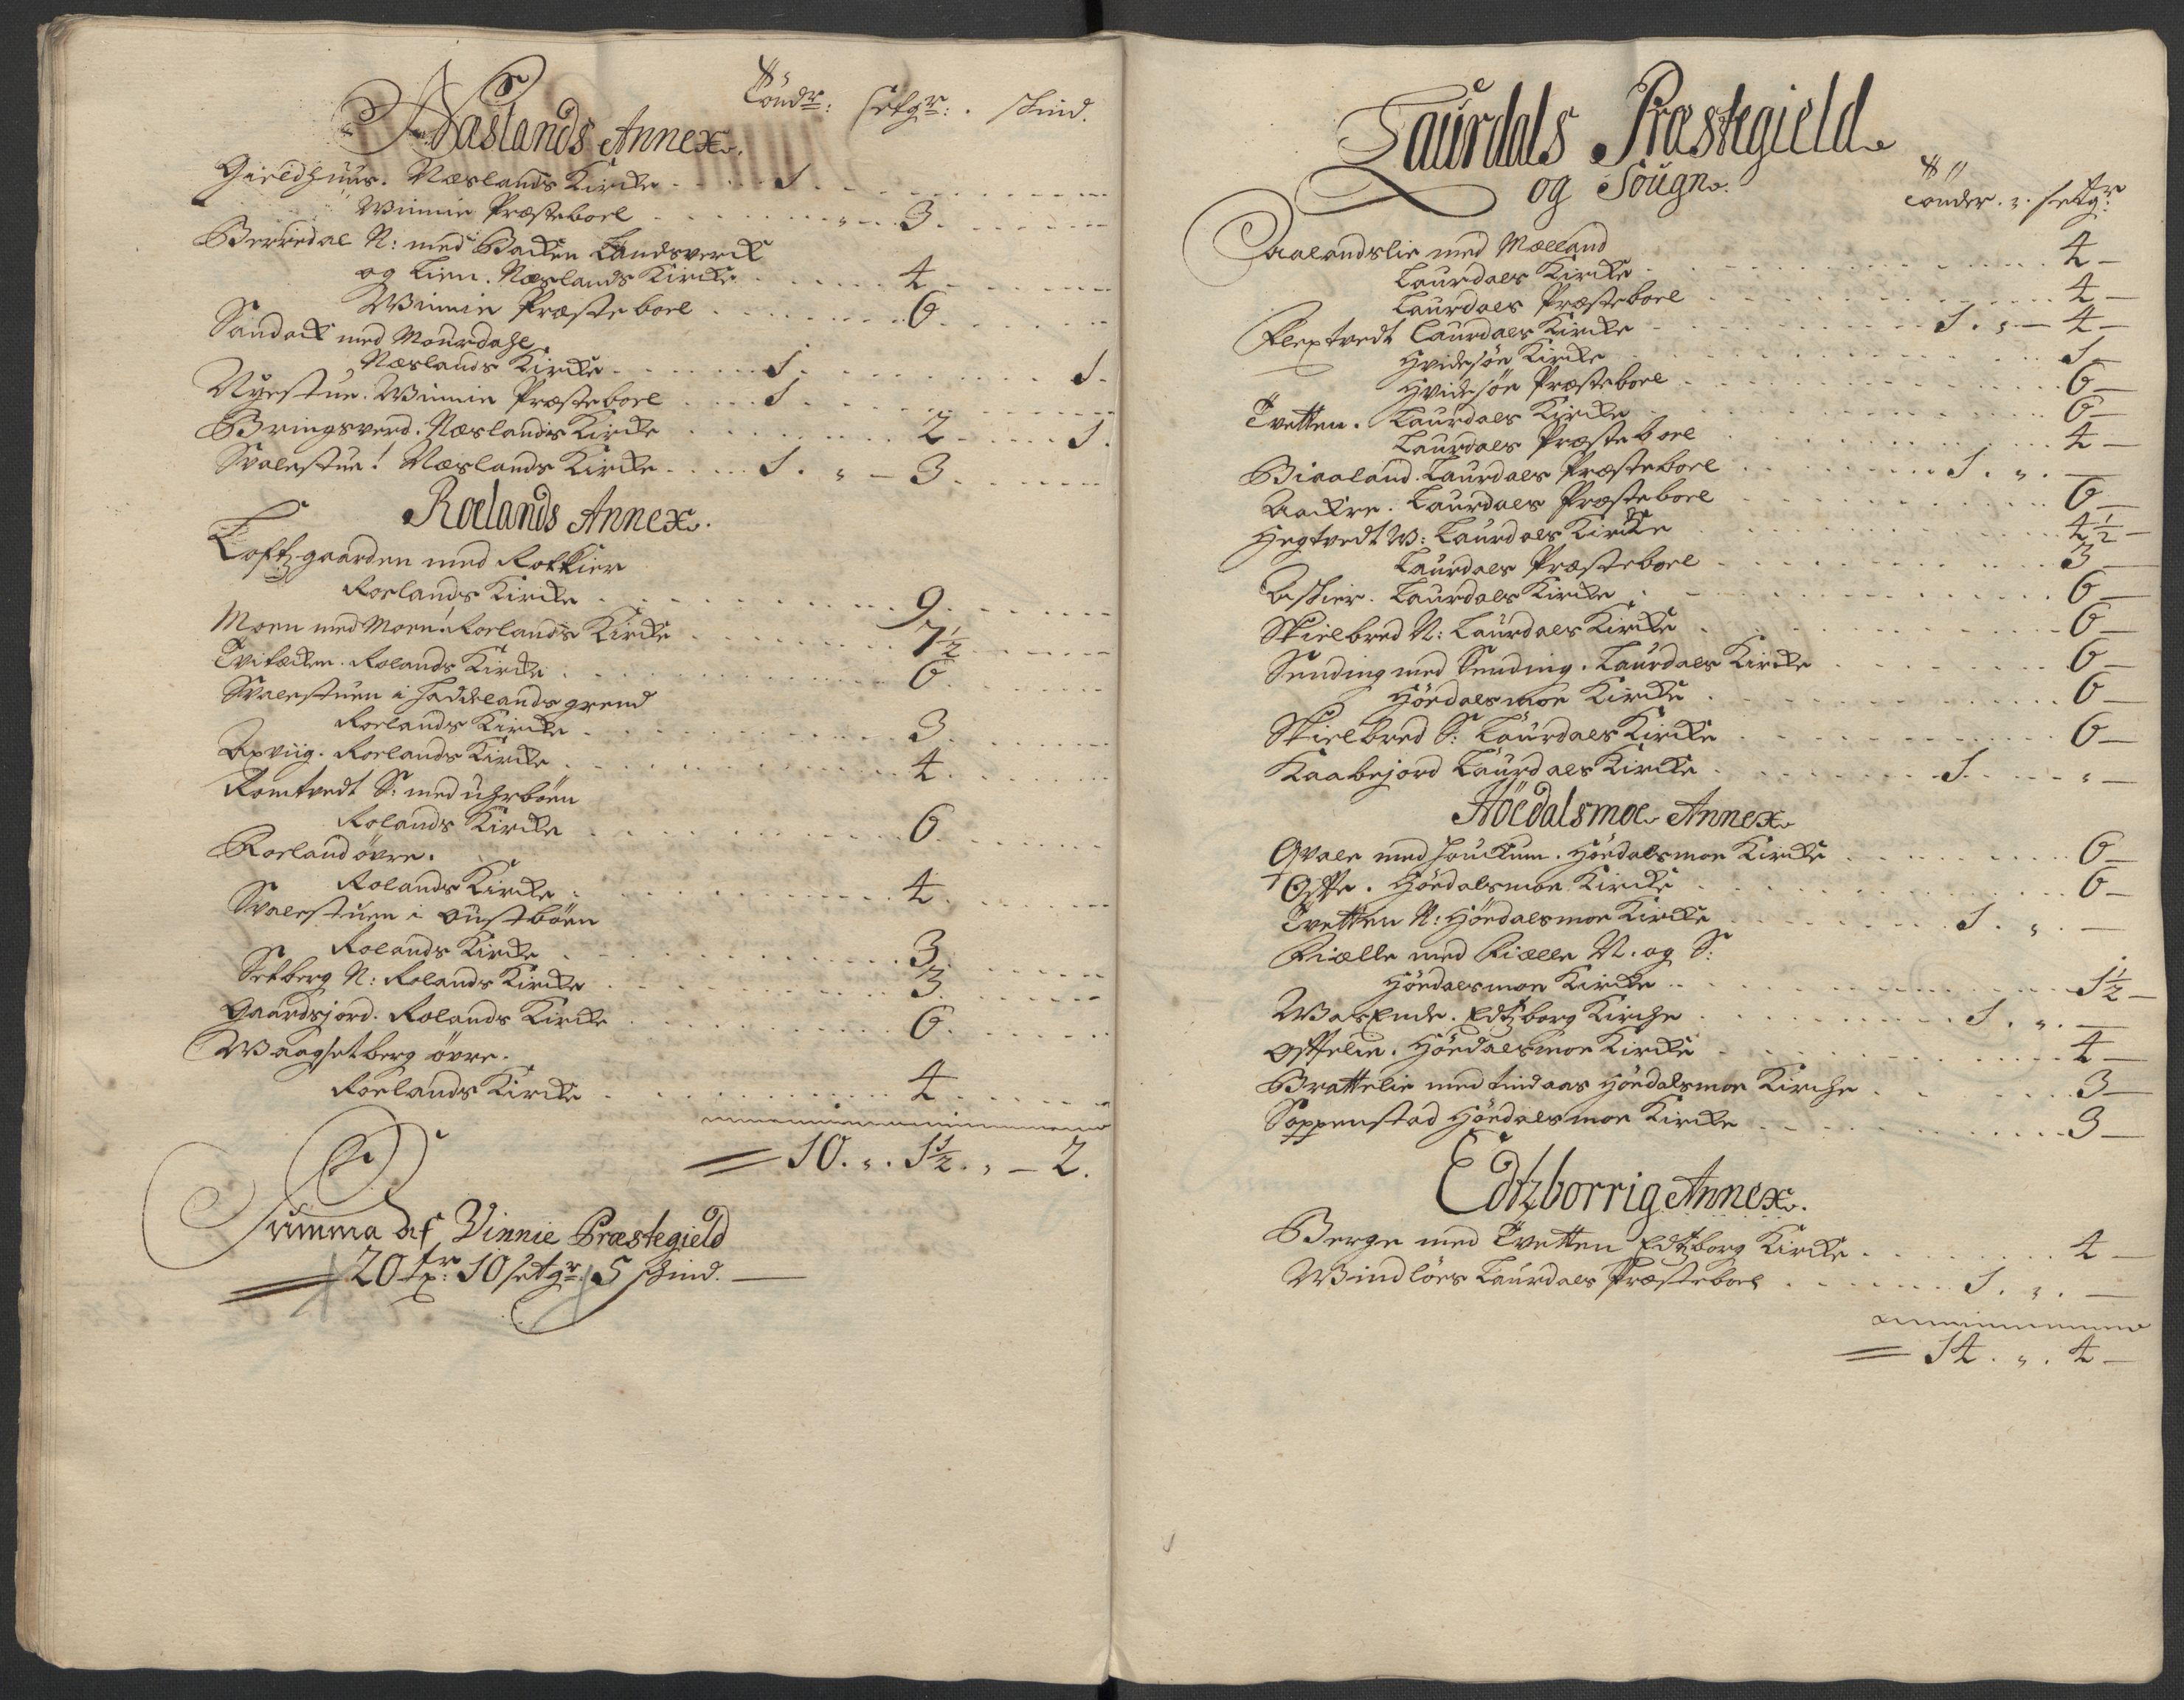 Töndr: setgr: skind.
Næslands Annex.
Gieldhuus. Næslands Kircke 1.
Winnie Præsteboel 3.
Berredal N: med Backen Landsverck
og Lien. Næslands Kircke 4
Winnie Præsteboel 6
Sandock med Mourdahl
Næslands Kircke 1. 1.
Nyestue. Winnie Præsteboel 1
Bringsverd. Næslands Kircke 2 1.
Svalestue! Næslands Kircke 1. „ 3.
Roelands Annex.
Loftzgaarden med Rokkier
Roelands Kircke 9.
Moen med Moen. Roelands Kircke 7½
Tvitæcken. Rolands Kircke 6
Svalestuen i Haddelands grend
Roelands Kircke 3
Axviig. Roelands Kircke 4
Romtvedt S: med Uhrböen
Rolands Kircke 6
Roeland övre.
Rolands Kircke 4
Svalestuen i Austböen
Rolands Kircke 3.
Setberg N: Rolands Kircke 3
Gaardsjord. Rolands Kircke 6
Waagsetberg övre.
Roelands Kircke 4
10. „. 1½. „ – 2.
Summa af Vinnie Præstegield
20 tr: 10 setgr: 5 skind.
Laurdals Præstegield
og Sougn.
Tönder. „. setgr
Aalandslie med Mælland
Laurdaels Kircke 4 –
Laurdaels Præsteboel 4 –
Flextvedt Laurdaels Kircke 1. „ – 4 –
Hvidesöe Kircke 1 –
Hvidesöe Præsteboel 6 –
Tvetten. Laurdaels Kircke 6 –
Laurdaels Præsteboel 4 –
Biaaland. Laurdaels Præsteboel 1. „. –
Aackre. Laurdaels Præsteboel 6 –
Hegtvedt W: Laurdaels Kircke 4½ –
Laurdaels Præsteboel 3 –
Askier. Laurdaels Kircke 6 –
Skielbred N: Laurdaels Kircke 6 –
Sending med Sending. Laurdaels Kircke 6 –
Höedalsmoe Kircke 6 –
Skielbred S: Laurdaels Kircke 6 –
Kaabejord Laurdaels Kircke 1 „ –
Höedalsmoe Annex
Qvale med Hauckum. Höedalsmoe Kircke 6 –
+ Ofte. Höedalsmoe Kircke 6 –
Tvetten N: Höedalsmoe Kircke 1. „. –
Fiælle med Fiælle N. og S:
Höedalsmoe Kircke 1½ –
WasEnde. Edtzborg Kirche 1. „. –
Oftelie. Höedalsmoe Kircke 4 –
Brattelie med Lindaas Höedalsmoe Kirche 3 –
Soppenstad Höedalsmoe Kircke 3 –
Edtzborrig Annex.
Berge med Tvetten Edtzborg Kircke 4 –
Windlöes Laurdaels Præsteboel 1. „. –
14. „. 4 –